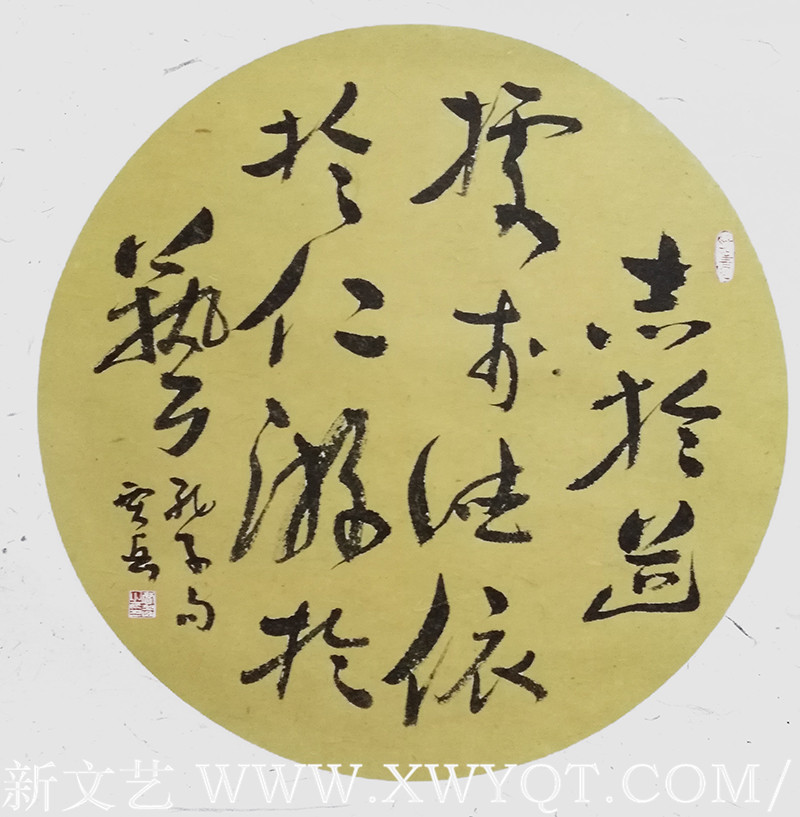 志於道
據於德依
於仁游於
藝
孔子句
雲岳
新文艺 WWW.XWYQT.COM/